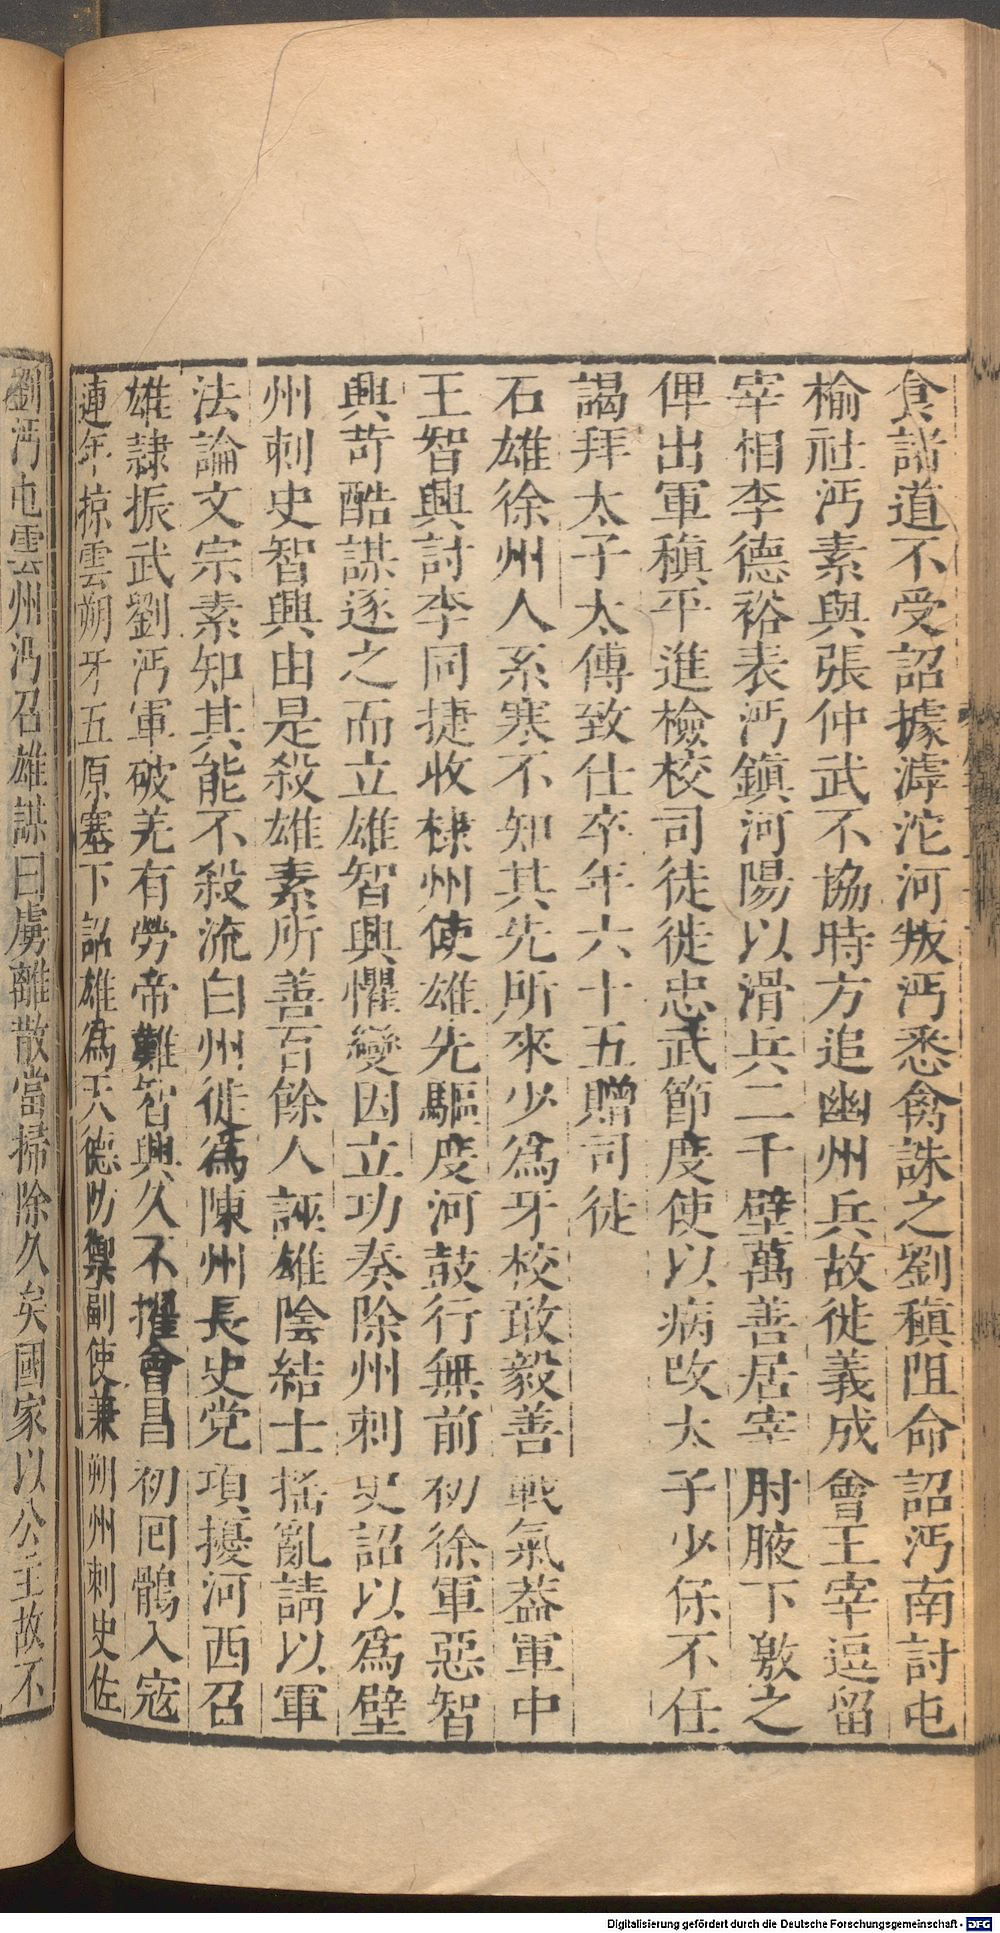 食諸道不受詔據滹沱河叛沔悉禽誅之劉稹阻命詔沔南討屯
榆社沔素與張仲武不協時方追幽州兵故徙義成會王宰逗留
宰相李德裕表沔鎮河陽以滑兵二千壁萬善居宰肘腋下激之
俾出軍稹平進檢校司徒徙忠武節度使以病改太子少保不任
謁拜太子太傅致仕卒年六十五贈司徒
石雄徐州人系寒不知其先所來少為牙校敢毅善戰氣蓋軍中
王智興討李同捷收棣州使雄先驅度河鼓行無前初徐軍惡智
興苛酷謀逐之而立雄智興懼變因立功奏除州刺史詔以為壁
州刺史智興由是殺雄素所善百餘人誣雄陰結士搖亂請以軍
法論文宗素知其能不殺流白州徙為陳州長史党項擾河西召
雄隷振武劉沔軍破羌有勞帝難智興久不擢會昌初回鶻入寇
連年掠雲朔牙五原塞下詔雄為天德防禦副使兼朔州刺史佐
劉沔屯雲州沔召雄謀曰虜離散當掃除久矣國家以公主故不
Digitalisierung gefördert durch die Deutsche Forschungsgemeinschaft - DFG